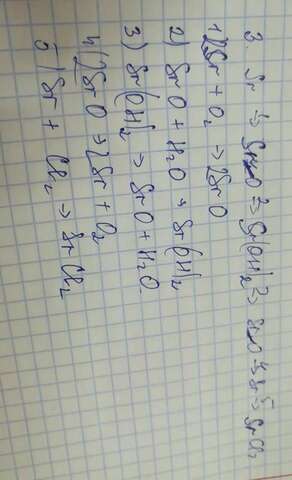 3. Sr ¹→ SrO ²→ Sr(OH)₂ ³→ SrO ⁴→ Sr ⁵→ SrCl₂
1) 2Sr + O₂ → 2SrO
2) SrO + H₂O → Sr(OH)₂
3) Sr(OH)₂ → SrO + H₂O
4) 2SrO → 2Sr + O₂
5) Sr + Cl₂ → SrCl₂